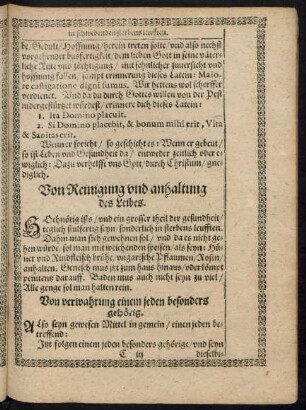 in schwebenden sterbens leufften.
be/ Gedult/ Hoffnung/ herein tretten solte/ vnd also nechst
vorgehender bußfertigkeit/ dem lieben Gott in seine väter-
liche Rute vnd züchtigung/ mit söhnlicher zuuersicht vnd
hoffnung fallen/ sampt erinnerung dieses Latein: Maio-
re castigatione digni sumus. Wir hettens wol scherffer
verdienet. Vnd da du durch Gottes willen von der Pest
bestürtzt würdest/ erinnere dich dieses Latein:
1. Ita Domino placuit.
2. Si Domino placebit, & bonum mihi erit, Vita
& Sanitas erit.
Wenn er spricht/ so geschicht es: Wenn er gebeut/
so ist Leben vnd Gesundheit da/ entweder zeitlich oder e-
wiglich: Dazu verhelffe vns Gott/ durch Christum/ gne-
diglich.
Von Reinigung vnd anhaltung
des Leibes.
HOchnötig ists/ vnd ein grosser theil der gesundheit/
teglich stulferig seyn/ sonderlich in sterbens leufften.
Dahin man sich gewehnen sol/ vnd da es nicht ge-
hen würde/ sol man mit weichenden speisen/ als seyn: Hü-
ner vnd Rindfleisch brühe/ vngarische Pflaumen/ Rosin/
anhalten. Genetzsch mus zum haus hinaus/ oder kömpt
Baden mus auch nicht seyn zu viel/
Alle genge sol man halten rein.
Von verwahrung einem jeden besonders
gehörig.
ALso seyn gewesen Mittel in gemein/ einen jeden be-
treffend:
Jtzt folgen einem jeden besonders gehörige/ vnd seyn
C iij
dieselbis